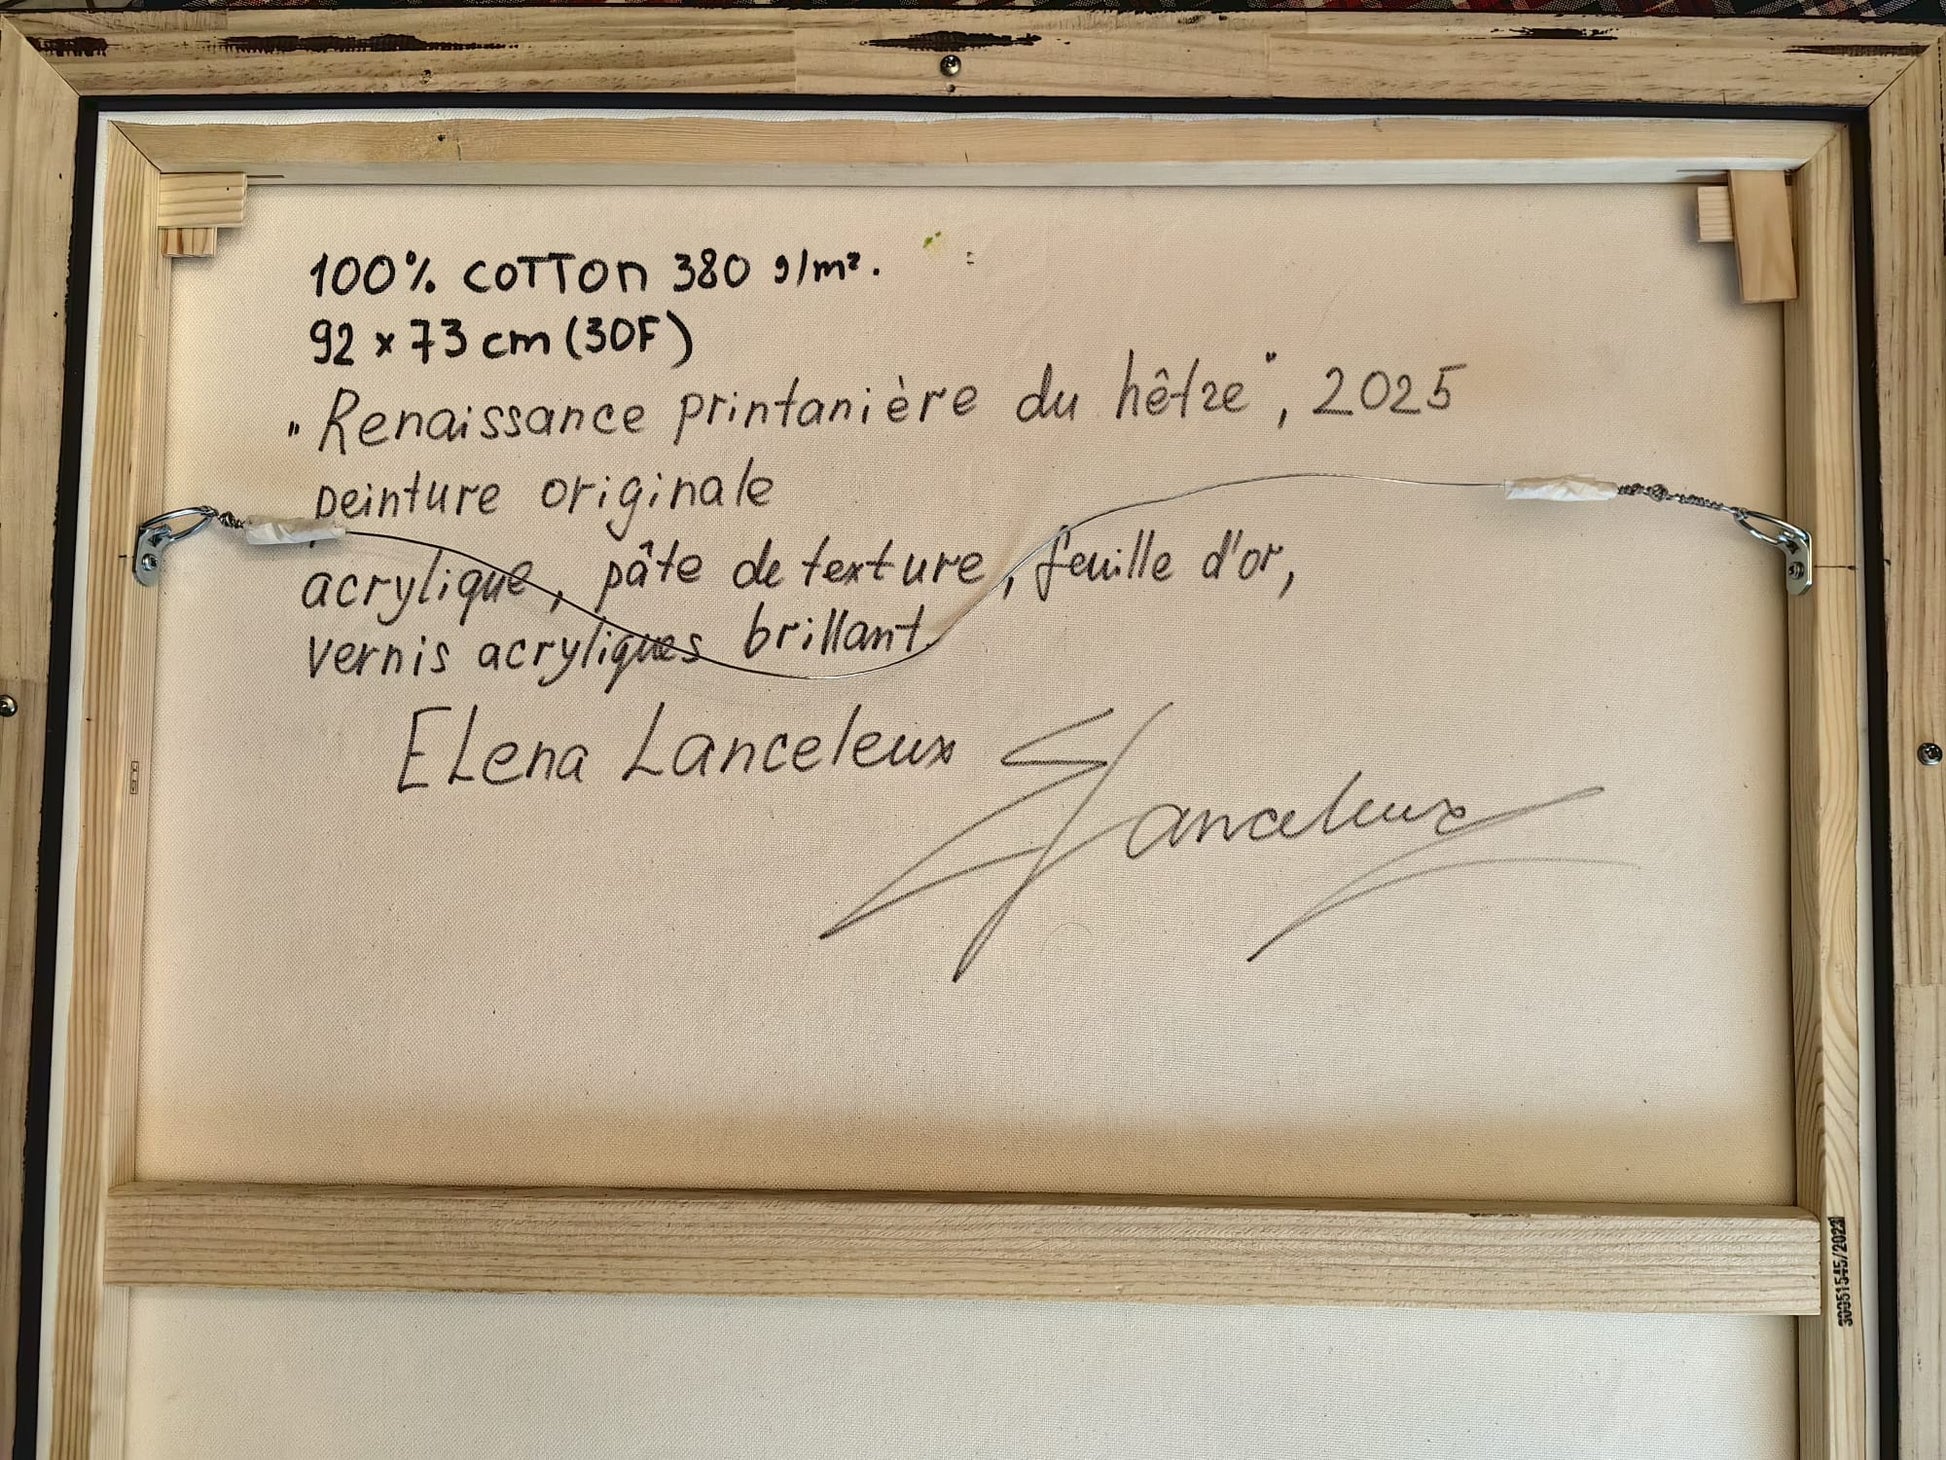 100% COTTON 380 g/m².
92 x 73 cm (30F)
"Renaissance printanière du hêtre", 2025
peinture originale
acrylique, pâte de texture, feuille d'or,
vernis acryliques brillant
Elena Lanceleux
Lanceleux
30051545/2023